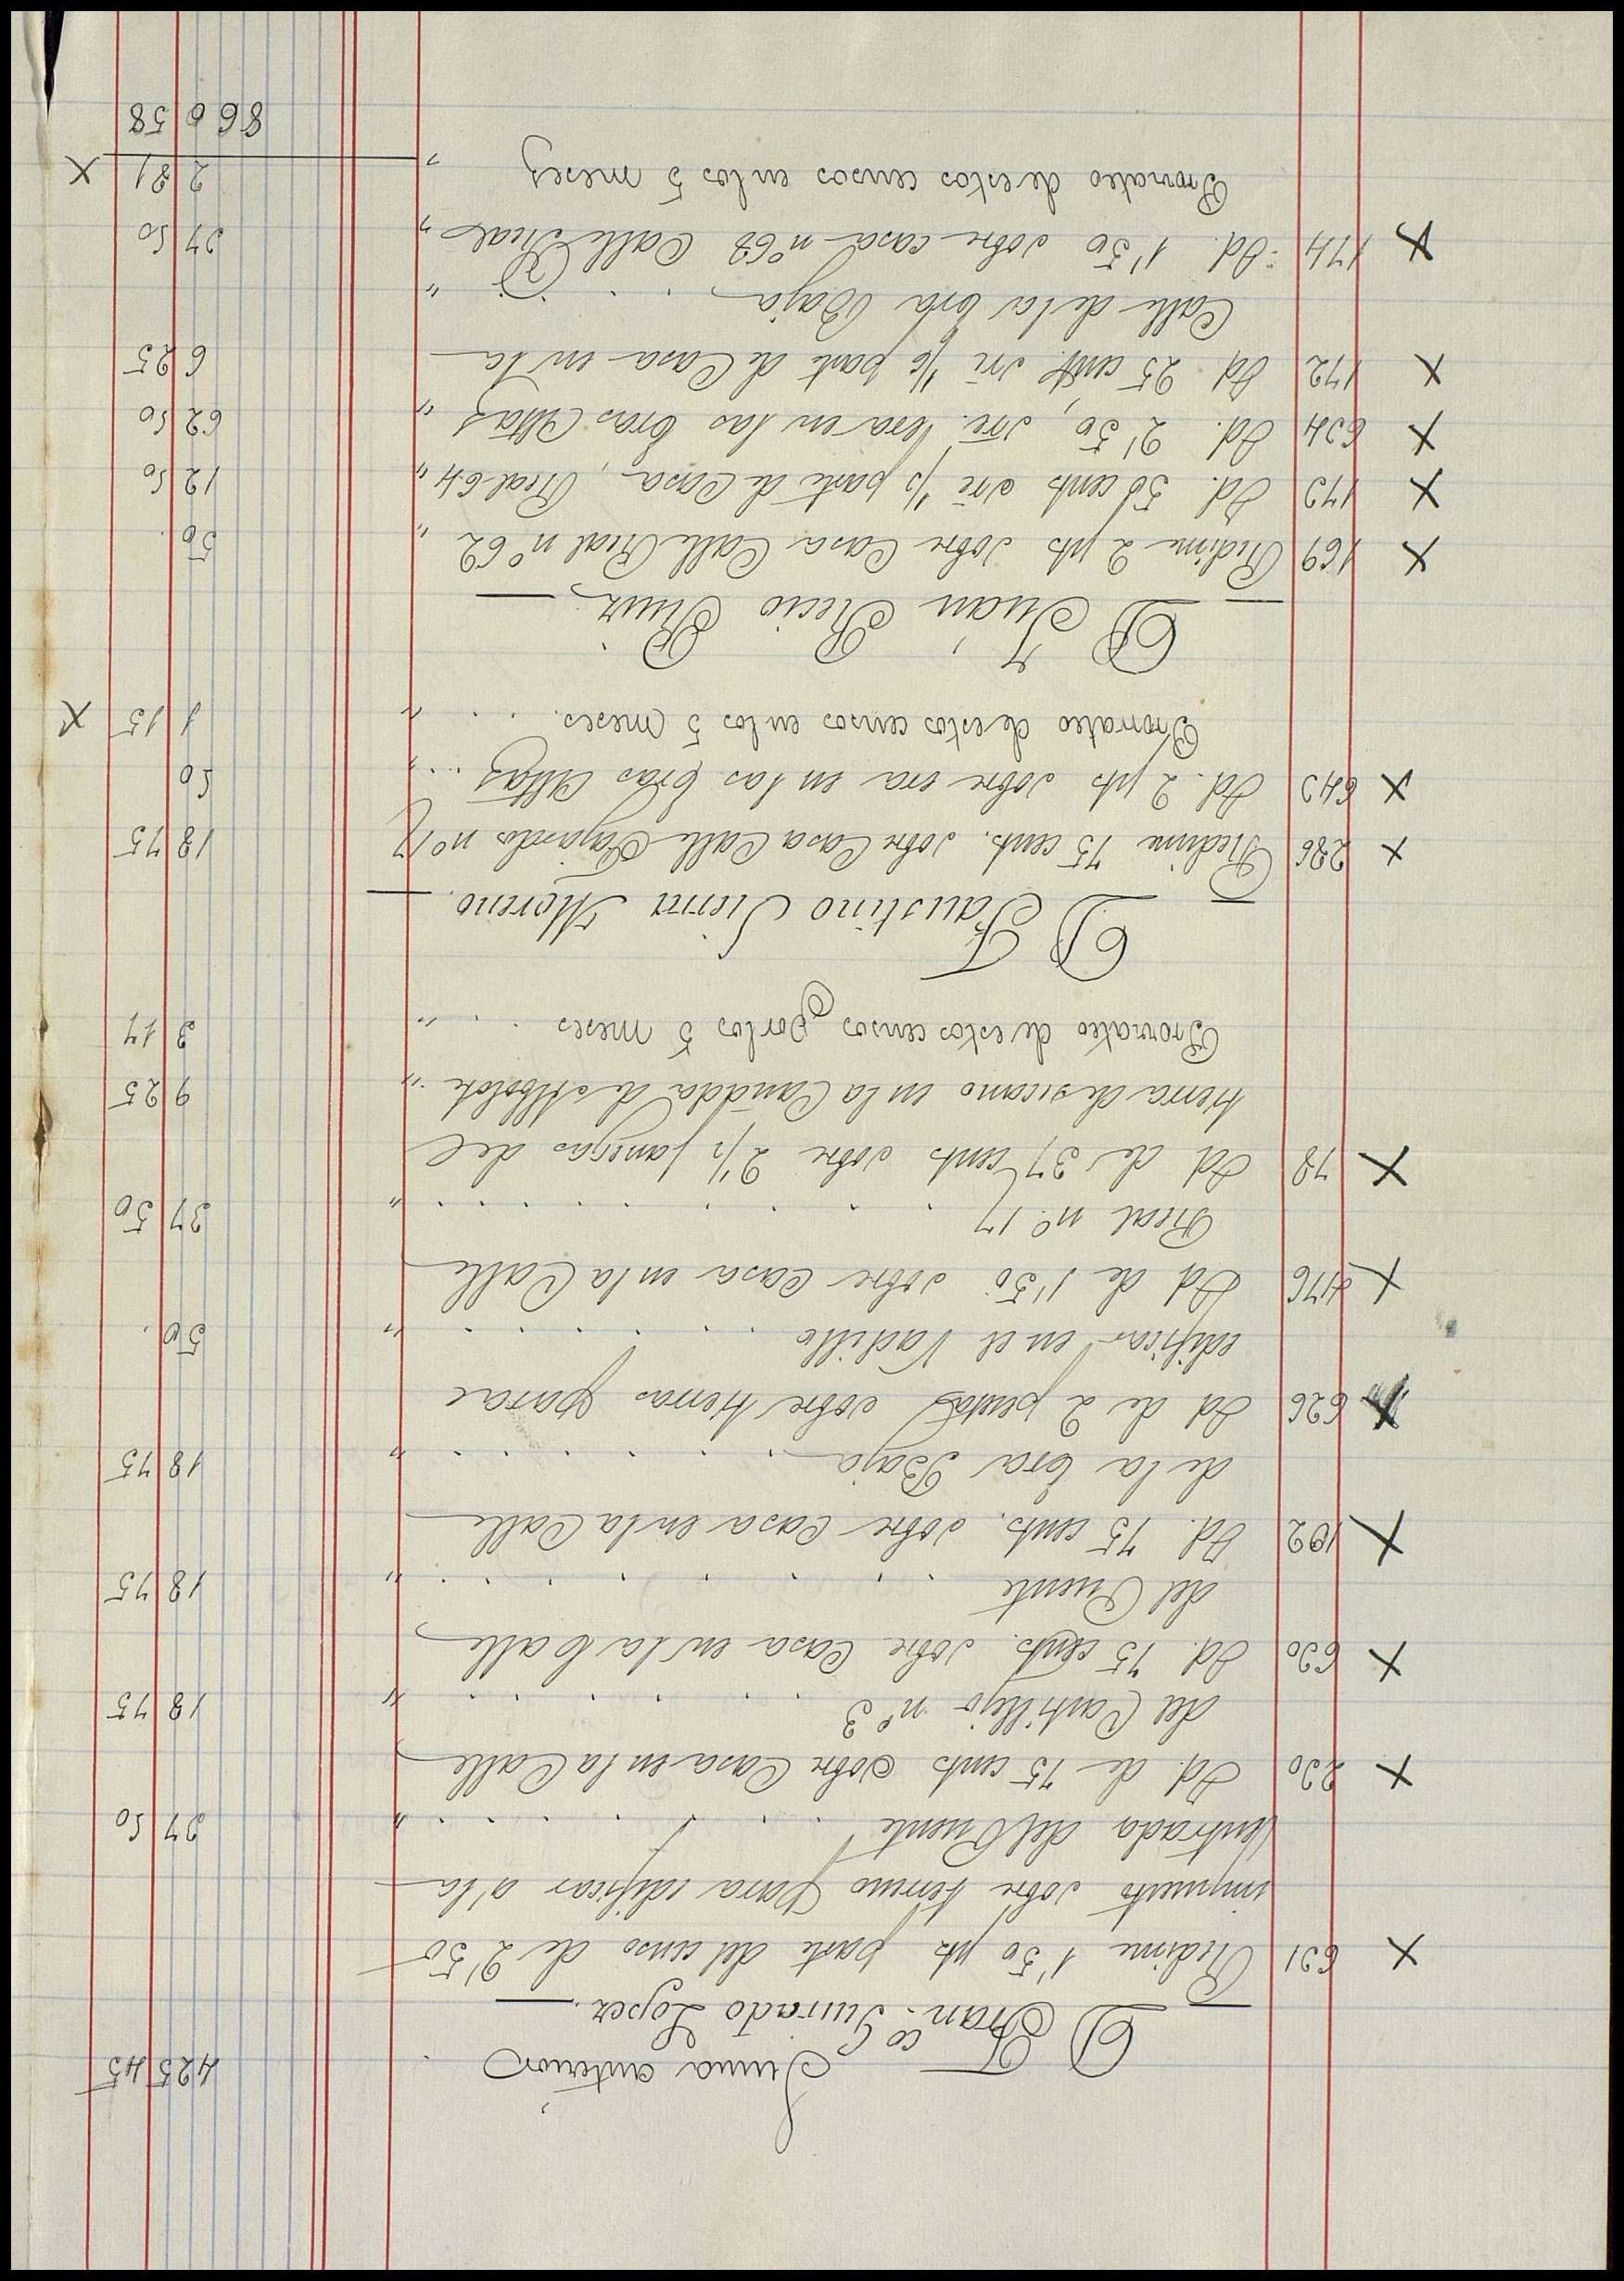 Suma anterior 425 45
D Fran.co Jurado Lopez.
X 631 Redime 1'50 pts parte del censo de 2'50
impuesto sobre terreno para edificar á la
entrada del Puente " 37 50
X 230 Id. de 75 cents sobre Casa en la Calle
del Cantillejo nº 3 " 18 75
X 630 Id. 75 cents. sobre Casa en la Calle
del Puente " 18 75
X 192 Id. 75 cents. sobre Casa en la Calle
de la Era Baja " 18 75
X 626 Id de 2 pesetas sobre tierras para
edificar en el Vadillo " 50 .
X 176 Id de 1'50 sobre Casa en la Calle
Real nº. 17 " 37 50
X 78 Id de 37 cents sobre 2 1/2 fanegas de
tierra de secano en la Cañada de " 9 25
Prorrateo de estos censos por los 5 meses " 3 17
D Faustino Sierra Moreno.
X 286 Redime 75 cents. sobre Casa Calle Fajardos nº 17 18 75
X 643 Id. 2 pts sobre era en las Eras Altas " 50
Prorrateo de estos censos en los 5 meses. " 1 15 X
D Juan Recio Ruiz
X 169 Redime 2 pts sobre Casa Calle Real nº 62 " 50 .
X 173 Id. 50 cents sre 1/3 parte de Casa, Real 64 " 12 50
X 634 Id. 2'50, sre. Era en las Eras Altas " 62 50
X 172 Id 25 cents sre 1/6 parte de Casa en la 6 25
Calle de la Era Baja "
X 174 Id. 1'50 sobre casa nº 68 Calle Real " 37 50
Prorrateo de estos censos en los 5 meses " 2 81 X
860 58